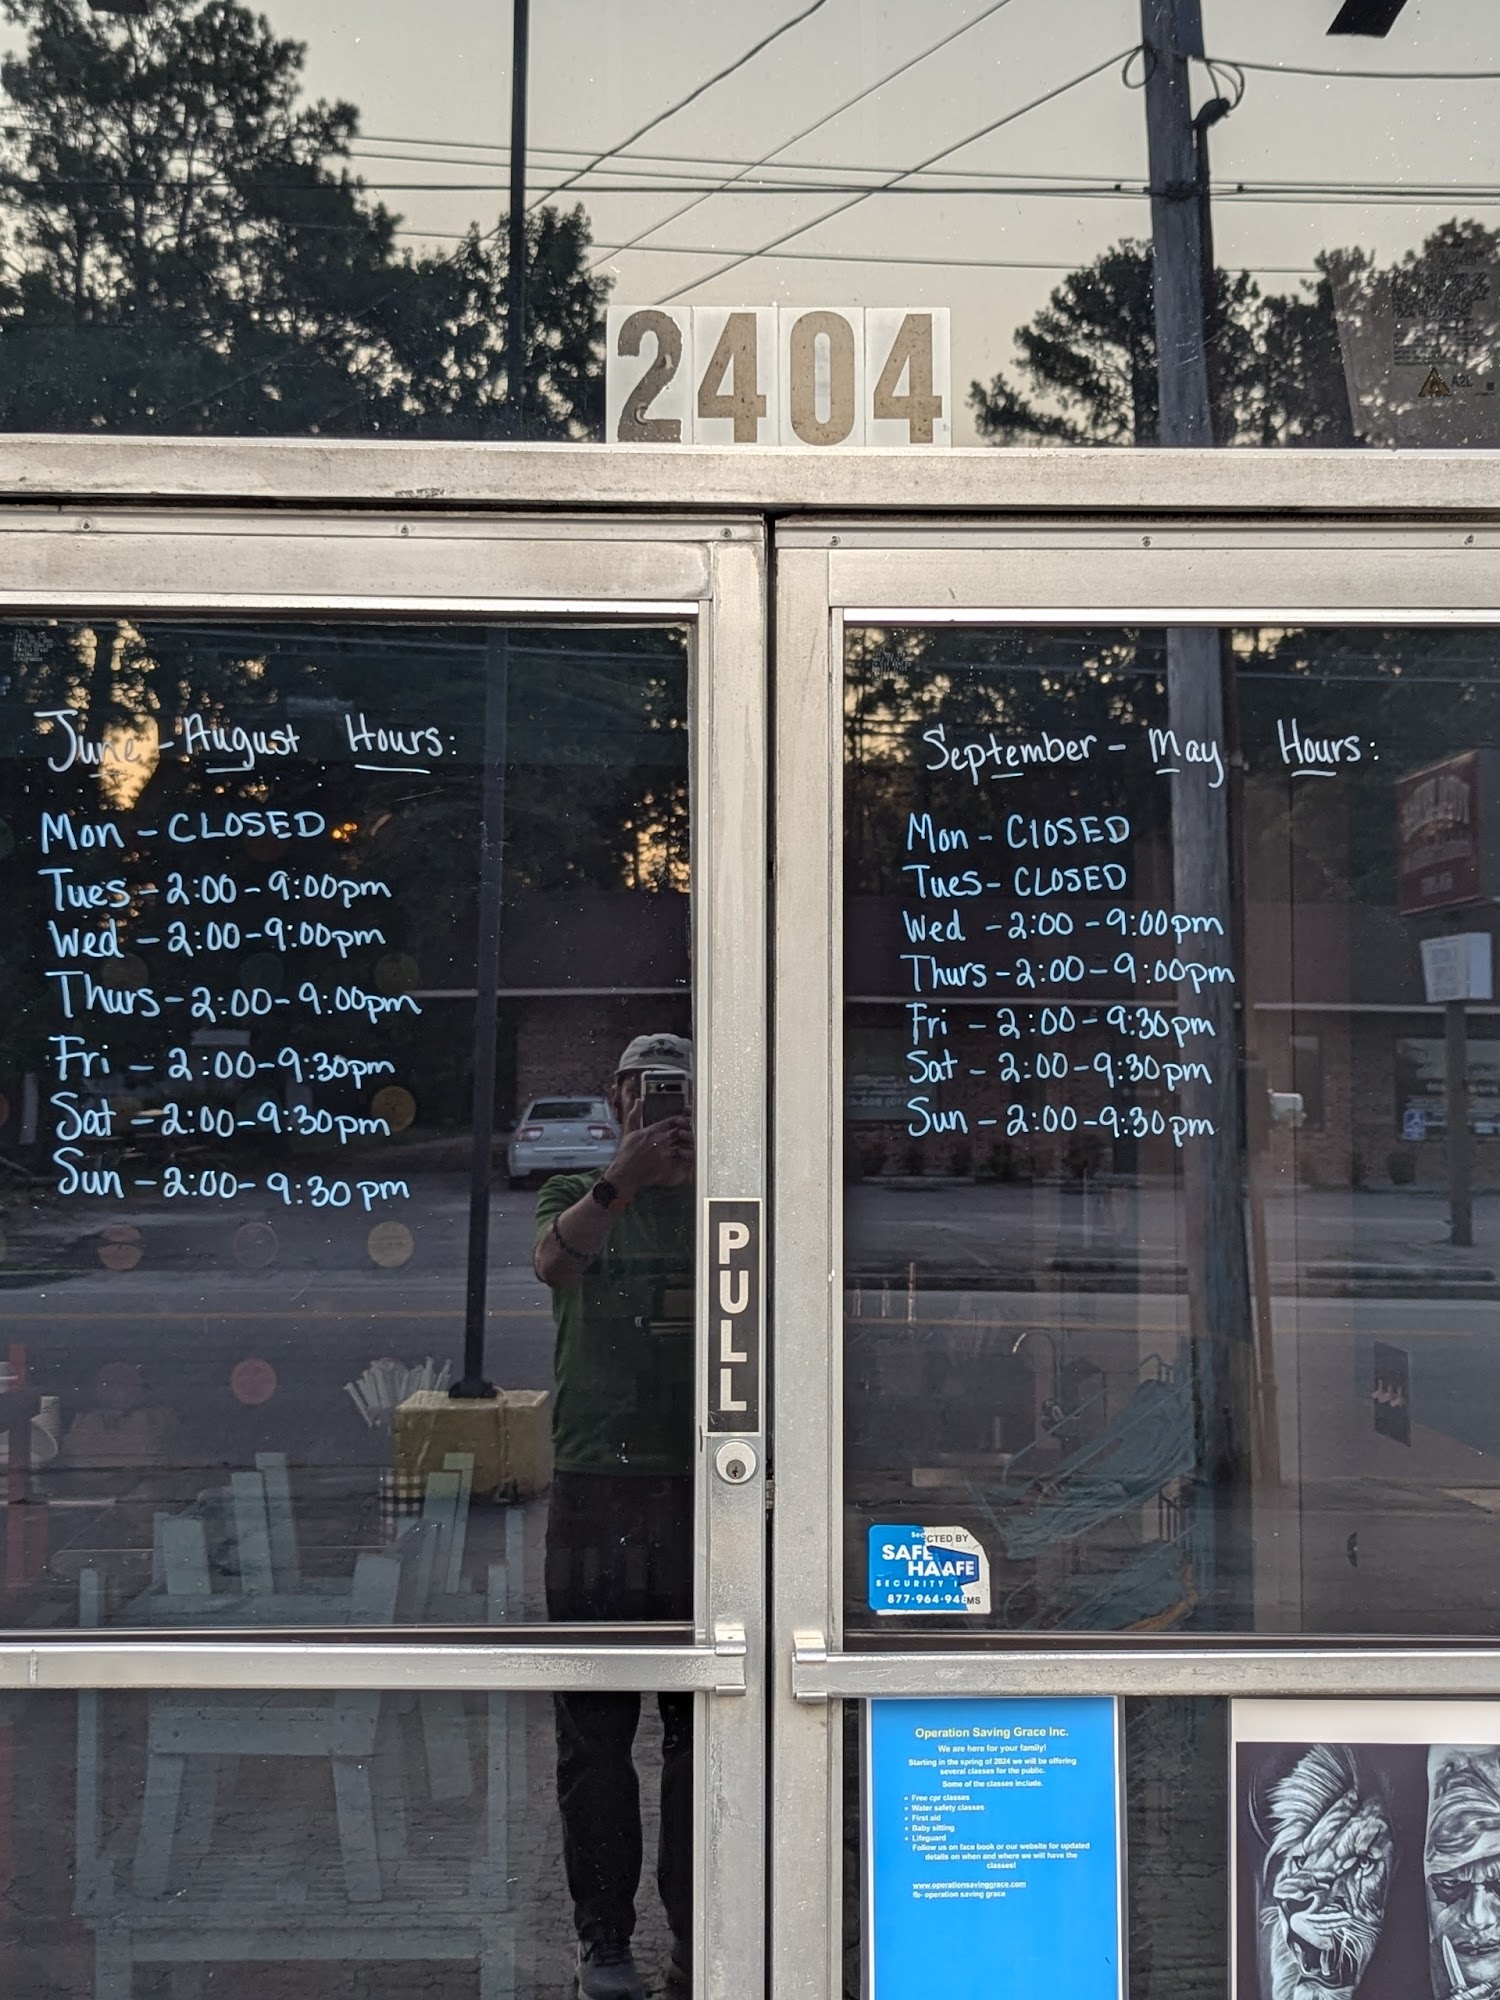 2404
June - August Hours:
Mon - CLOSED
Tues - 2:00 - 9:00pm
Wed - 2:00 - 9:00pm
Thurs - 2:00 - 9:00pm
Fri - 2:00 - 9:30pm
Sat - 2:00 - 9:30pm
Sun - 2:00 - 9:30pm
September - May Hours:
Mon - CLOSED
Tues - CLOSED
Wed - 2:00 - 9:00pm
Thurs - 2:00 - 9:00pm
Fri - 2:00 - 9:30pm
Sat - 2:00 - 9:30pm
Sun - 2:00 - 9:30pm
PULL
SAFE
SECURITY
877-964-94
Operation Saving Grace Inc.
We are here for your family!
Starting in the spring of 2024 we will be offering
several classes for the public.
Some of the classes include.
• Free cpr classes
• Water safety classes
• First aid
• Baby sitting
• Lifeguard
Follow us on face book or our website for updated
details on when and where we will have the
classes!
www.operationsavinggrace.com
fb- operation saving grace
A2L